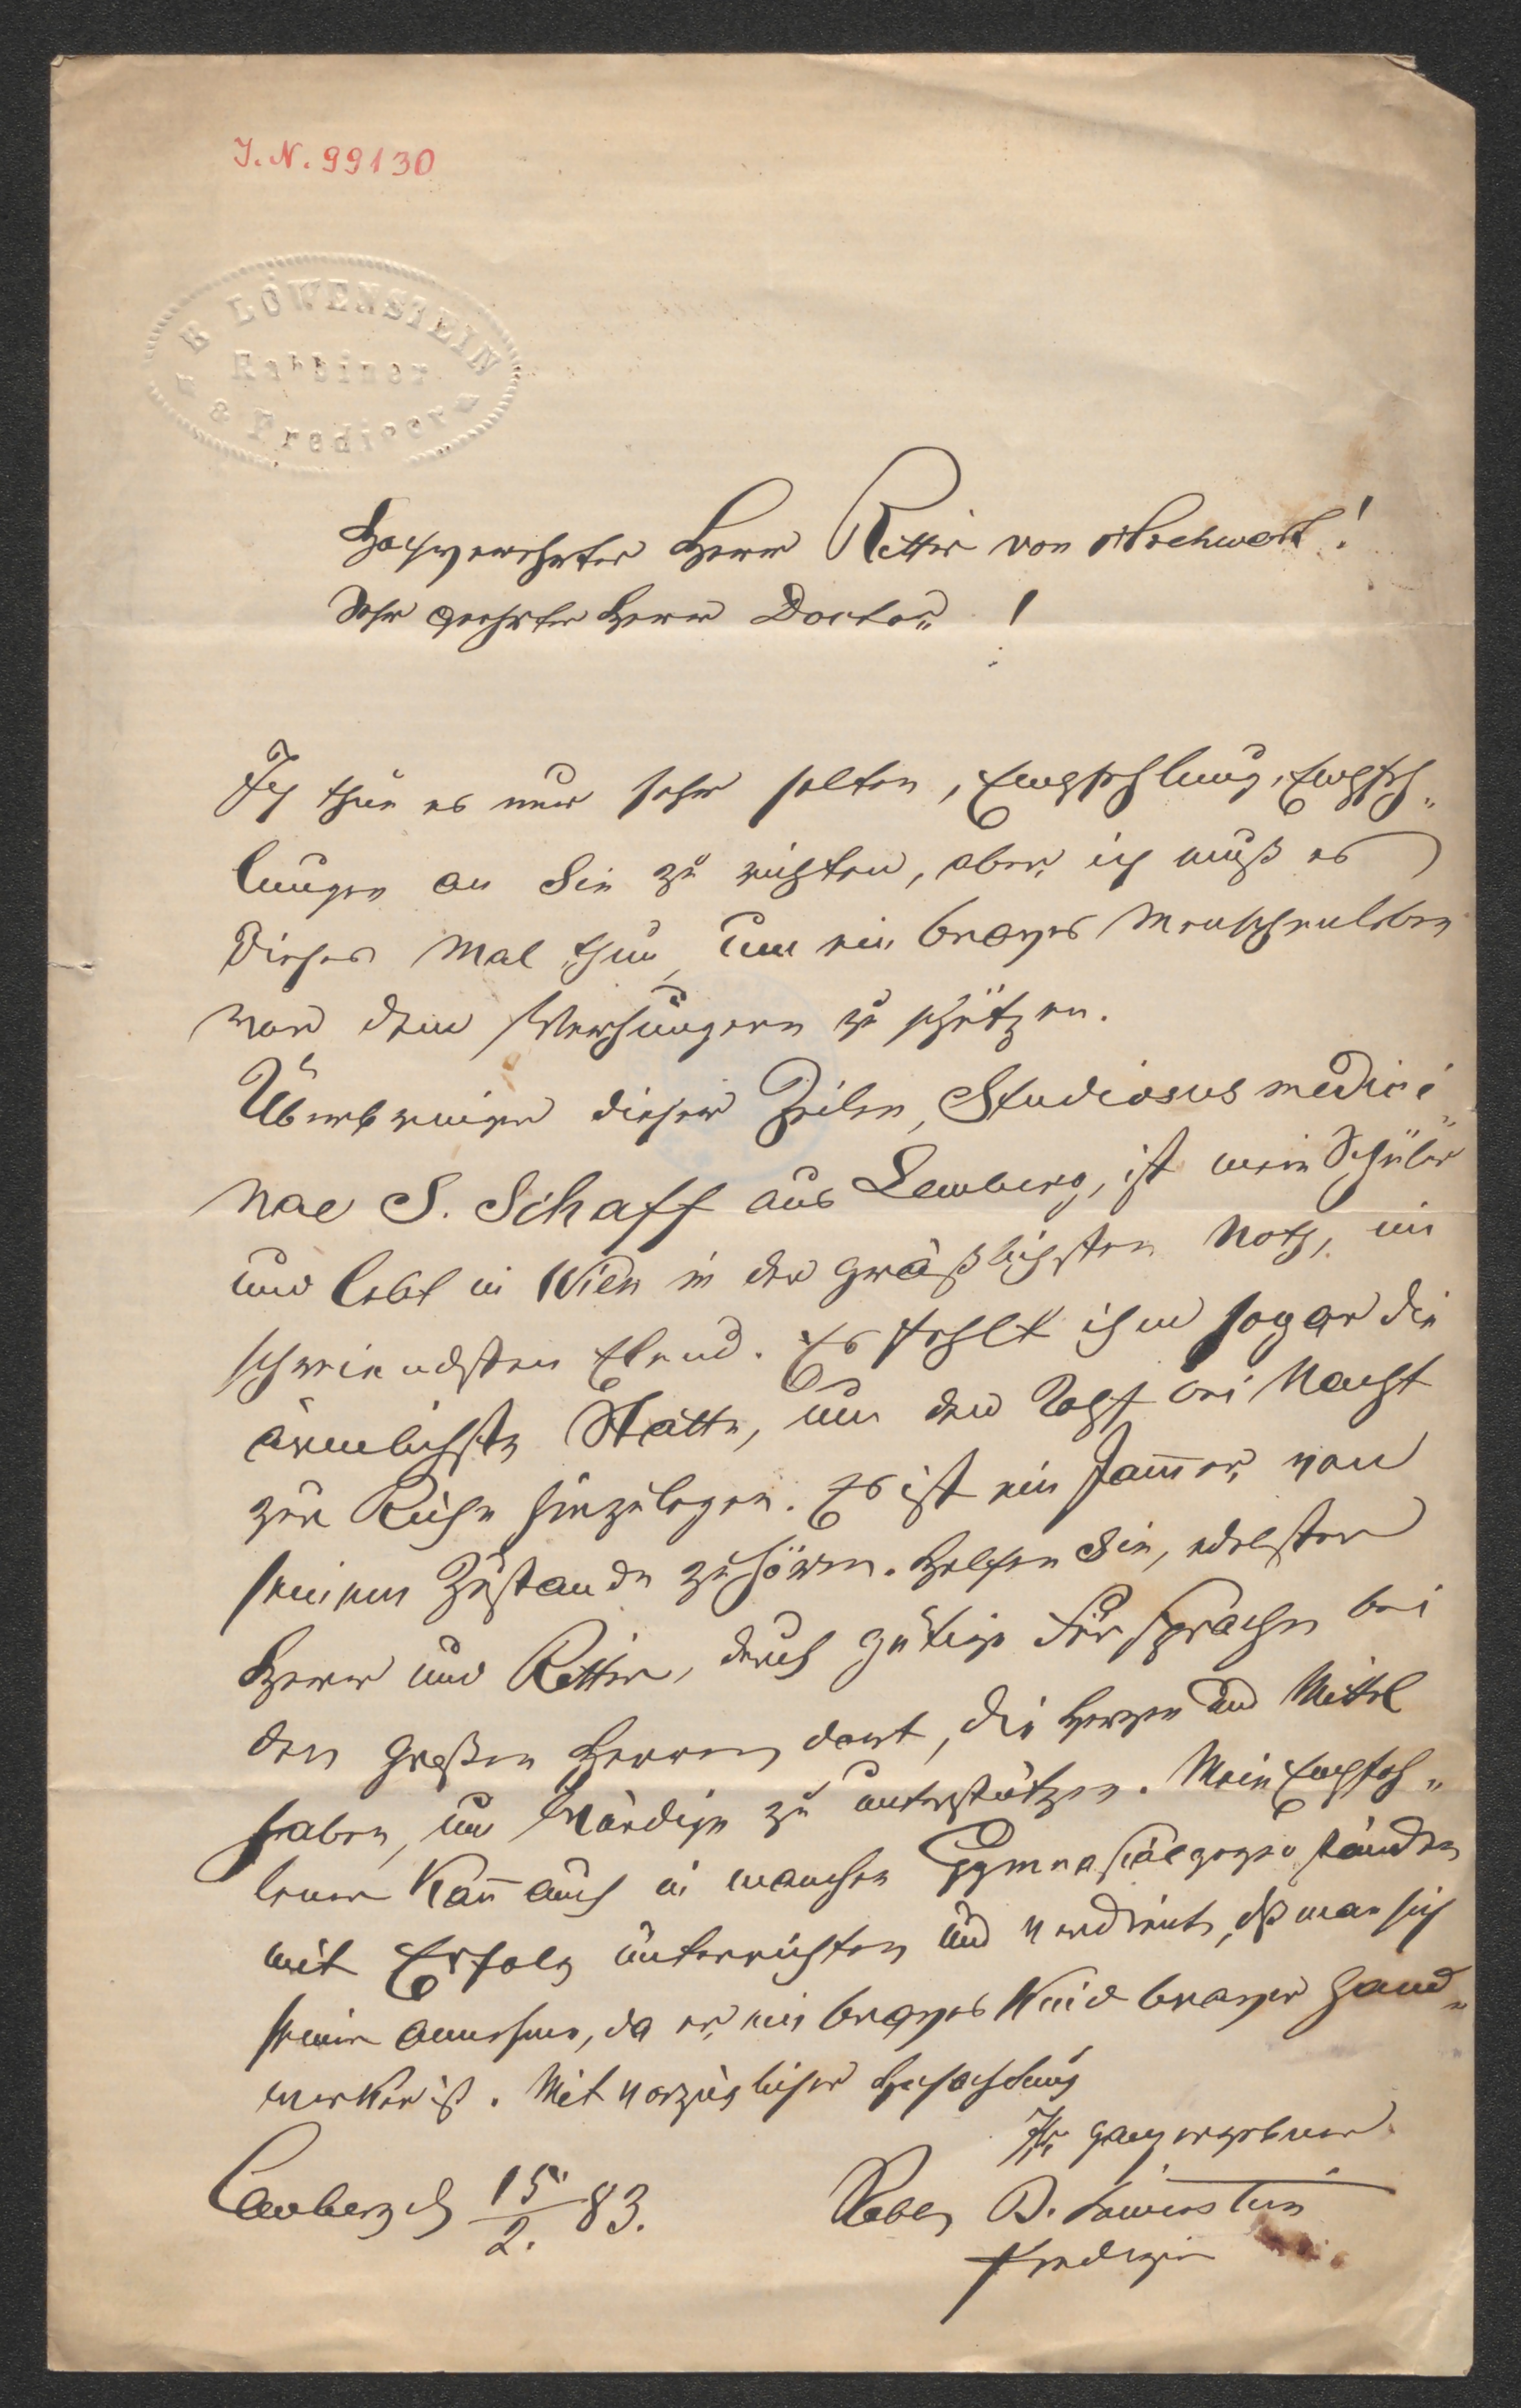 J. N. 99130
B LÖWENSTEIN
Rabbiner
& Prediger
Hochverehrter Herr Ritter von
Sehr geehrter Herr Doctor !
Ich thue es nur sehr selten, Empfehlung, Empfeh„
lungen an Sie zu richten, aber ich muß es
dieses Mal thun, um ein braves Menschenleben
vor dem Verhungern zu schützen.
Überbringer dieser Zeilen, Studiosus medici„
nae S. Schaff aus Lemberg, ist mein Schüler
und lebt in Wien in der gräßlichsten Noth, im
schreiendsten Elend. Es fehlt ihm sogar die
ärmlichste Stätte, um den Kopf bei Nacht
zur Ruhe hinzulegen. Es ist ein Jam̄er, von
seinem Zustande zu hören. Helfen Sie, edelster
Herr und Ritter, durch gütige Fürsprache bei
den großen Herren dort, die Herzen und Mittel
haben, um Würdige zu unterstützen. Mein Empfoh„
lener kan̄ auch in manchen Gymnasialgegenständen
mit Erfolg unterrichten und verdient, dß man sich
seiner annehme, da er ein braves Kind braver Hand„
werker ist. Mit vorzüglicher Hochachtung
Ihr ganz ergebener
Lemberg d 15/2. 83.
B. Löwenstein
Prediger